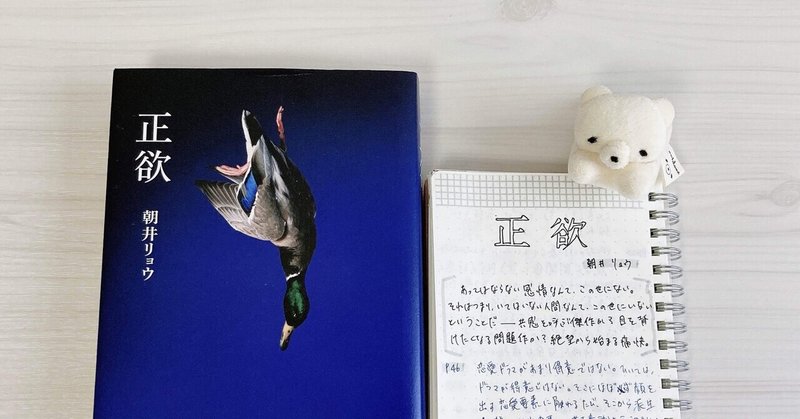 正欲
朝井リョウ
正欲
朝井リョウ
あってはならない感情なんて、この世にない。
それはつまり、いてはいない人間なんて、この世にいない
ということだ――共感を呼ぶ傑作か? 目を背
けたくなる問題作か? 絶望から始まる痛快。
P46
恋愛ドラマがあまり得意ではない。ひいては、
ドラマが得意ではない。そこにはほぼ必ず顔を
出す恋愛要素に触れるたび、そこから派生